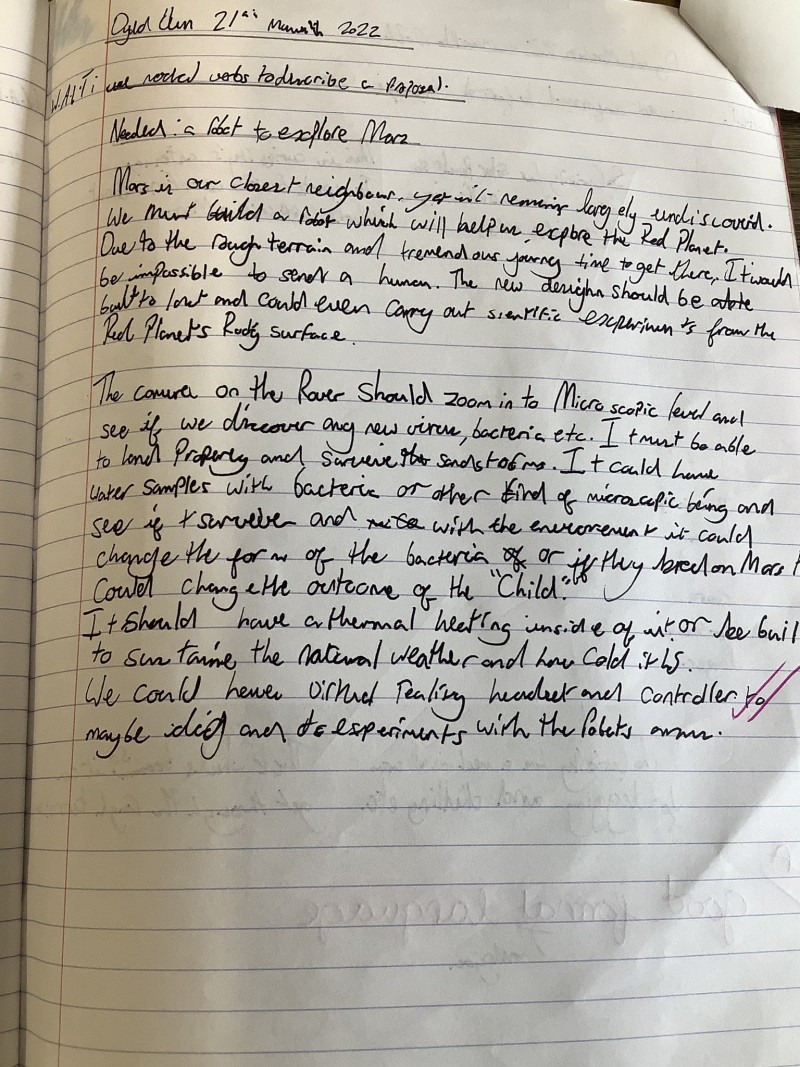 21 2022
W.A.L.T: use verbs to describe a proposal.
Needed: a robot to explore Mars
Mars is our closest neighbour, yet it remains largely undiscoverd.
We must build a robot which will help us explore the Red Planet.
Due to the rough terrain and tremendous journey time to get there, It would
be impossible to send a human. The new should be
built to last and could even carry out sientific experiments from the
Red Planets Rocky surface.
The camera on the Rover should zoom in to Microscopic level and
see if we discover any new virus, bacteria etc. It must be able
to land Properly and survive the sandstorms. It could have
water samples with bacteria or other kind of being and
see if survive and with the it could
change the form of the bacteria or if they breed on Mars
change the outcome of the "Child".
It should have a thermal heating inside of it or be buil
to the natural weather and how cold it is.
We could have virtual reality headset and controller to
maybe dig and do experiments with the Robots arms.
good formal language